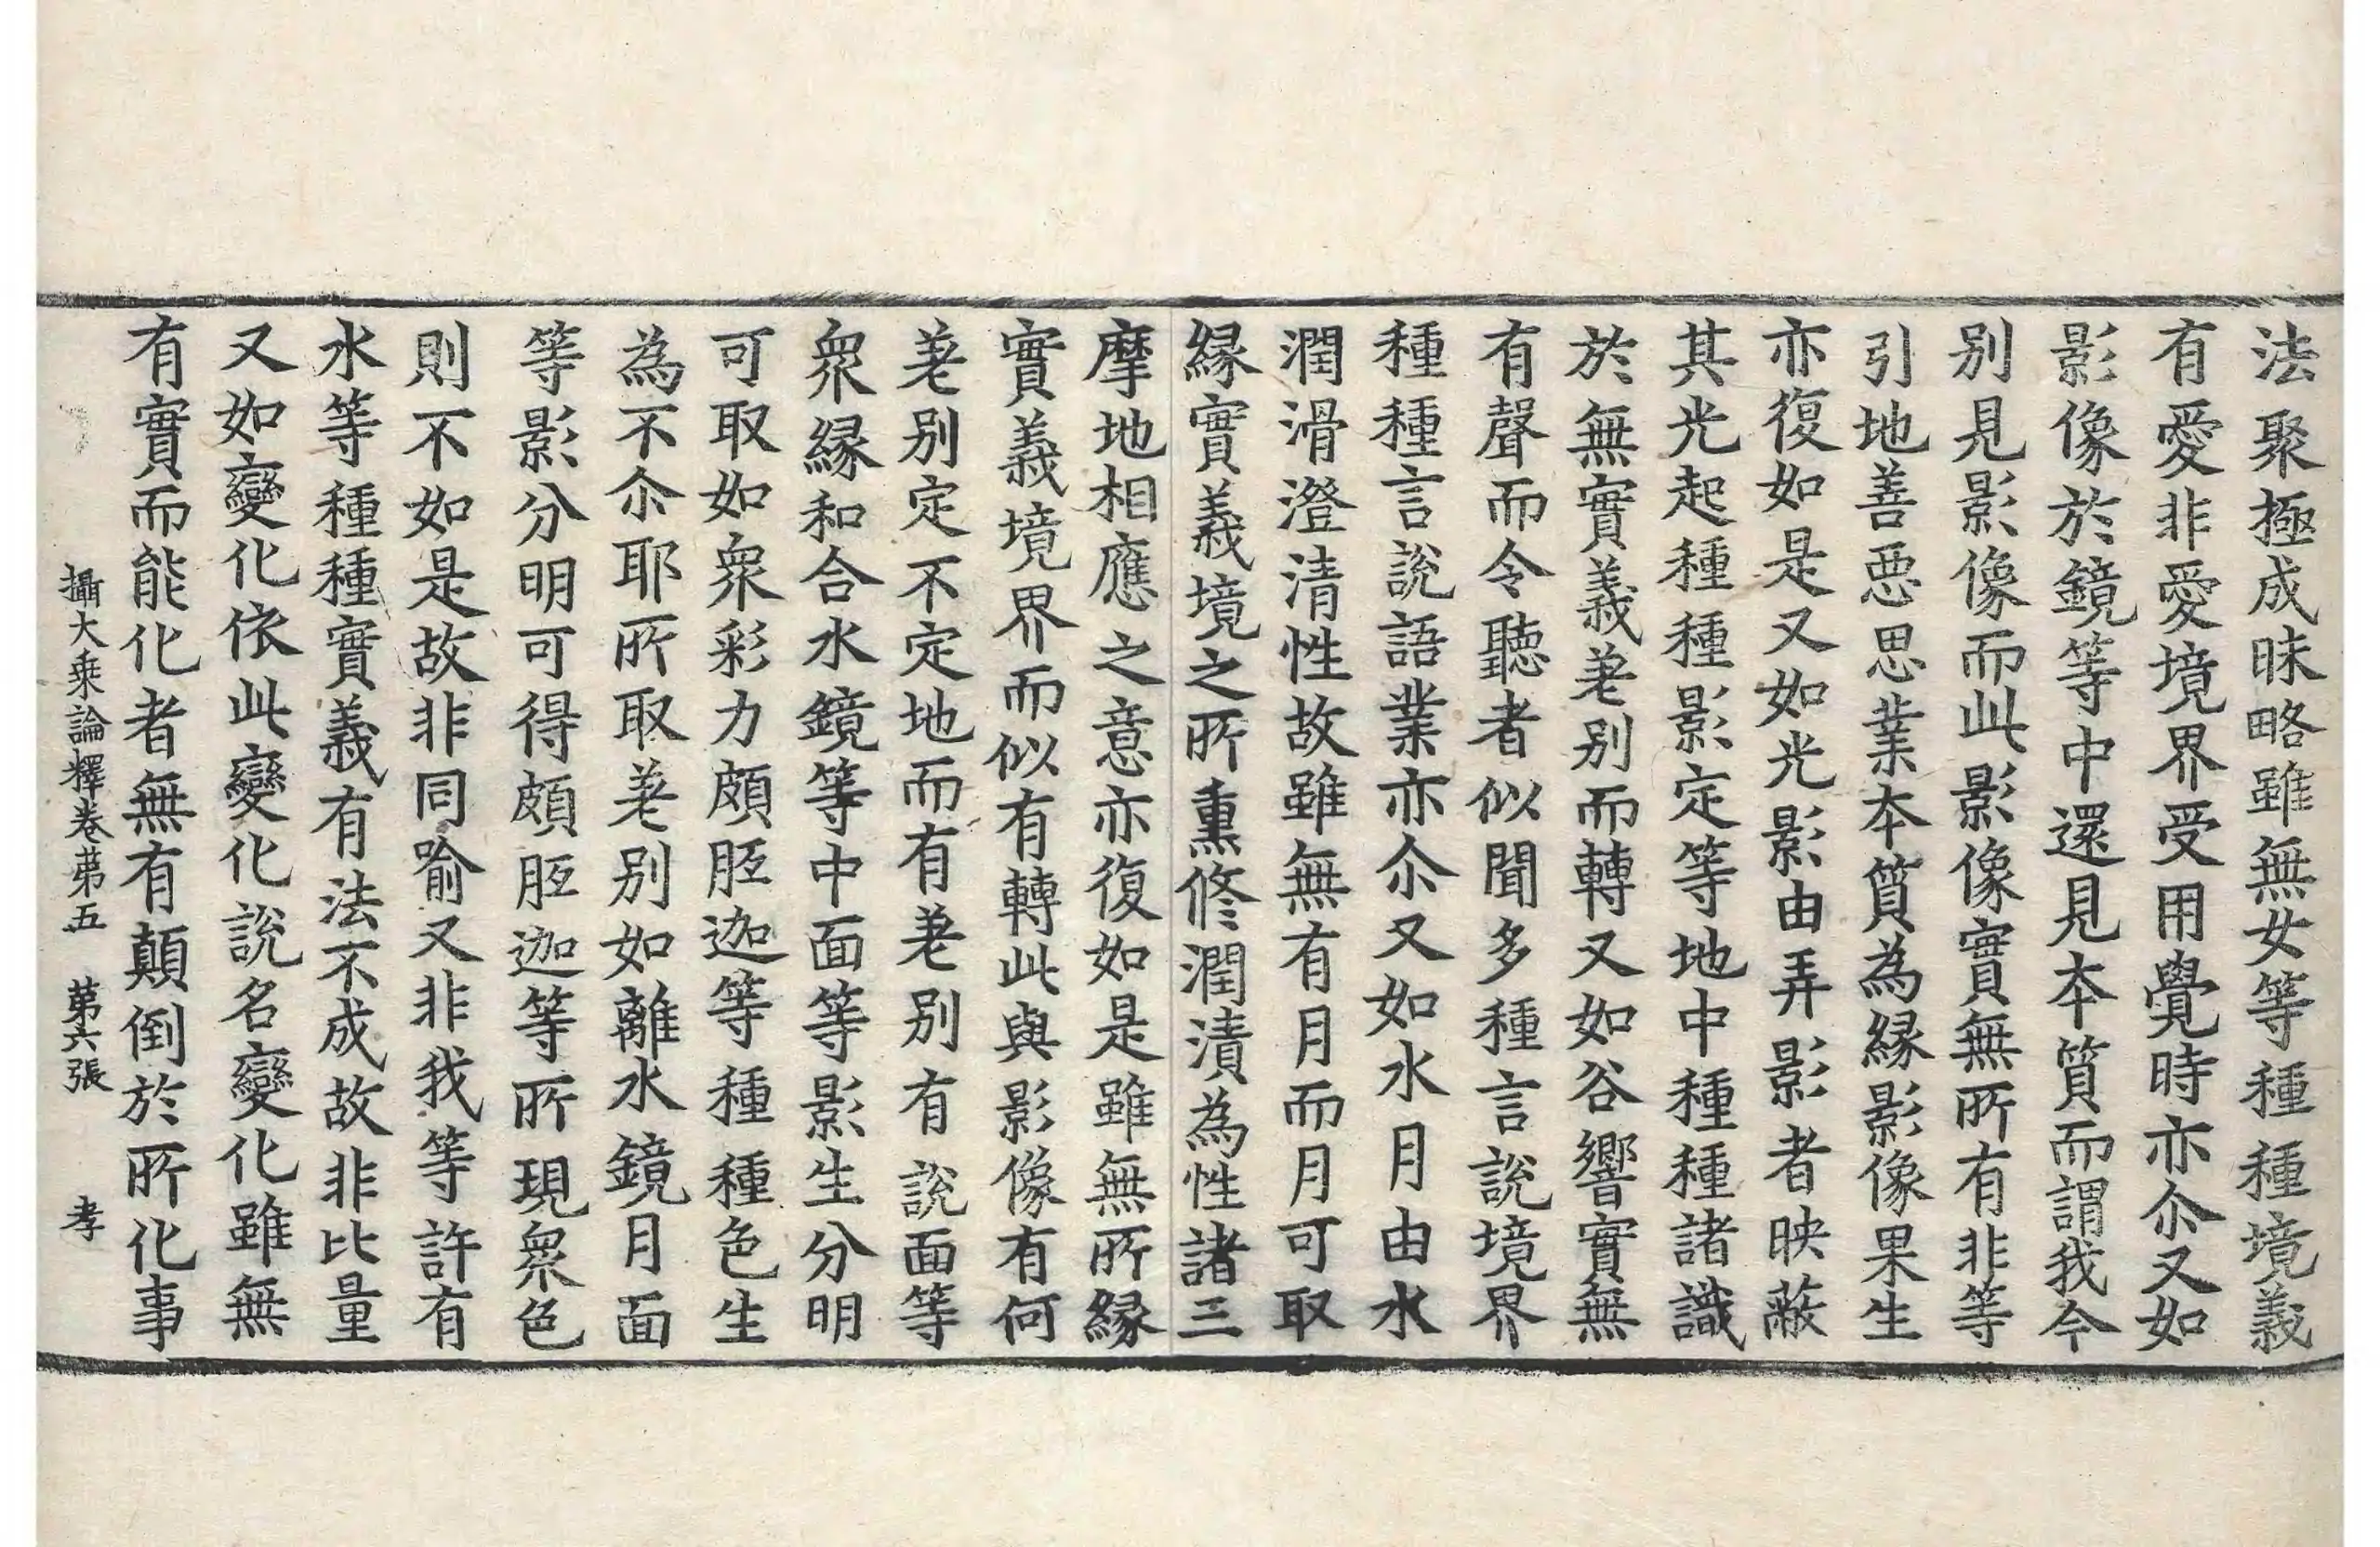 法聚極成昧略雖無女等種種境義
有愛非愛境界受用覺時亦尒又如
影像於鏡等中還見本質而謂我今
别見影像而此影像實無所有非等
引地善惡思業本質為緣影像果生
亦復如是又如光影由弄影者映蔽
其光起種種影定等地中種種諸識
於無實義差别而轉又如谷響實無
有聲而令聽者似聞多種言說境界
種種言說語業亦尒又如水月由水
潤滑澄清性故雖無有月而月可取
緣實義境之所熏修潤漬為性諸三
摩地相應之意亦復如是雖無所緣
實義境界而似有轉此與影像有何
差别定不定地而有差别有說面等
衆緣和合水鏡等中面等影生分明
可取如衆彩力頗胝迦等種種色生
為不尒耶所取差别如離水鏡月面
等影分明可得頗胝迦等所現衆色
則不如是故非同喻又非我等許有
水等種種實義有法不成故非比量
又如變化依此變化說名變化雖無
有實而能化者無有顛倒於所化事
攝大乘論釋卷苐五 苐六張 孝